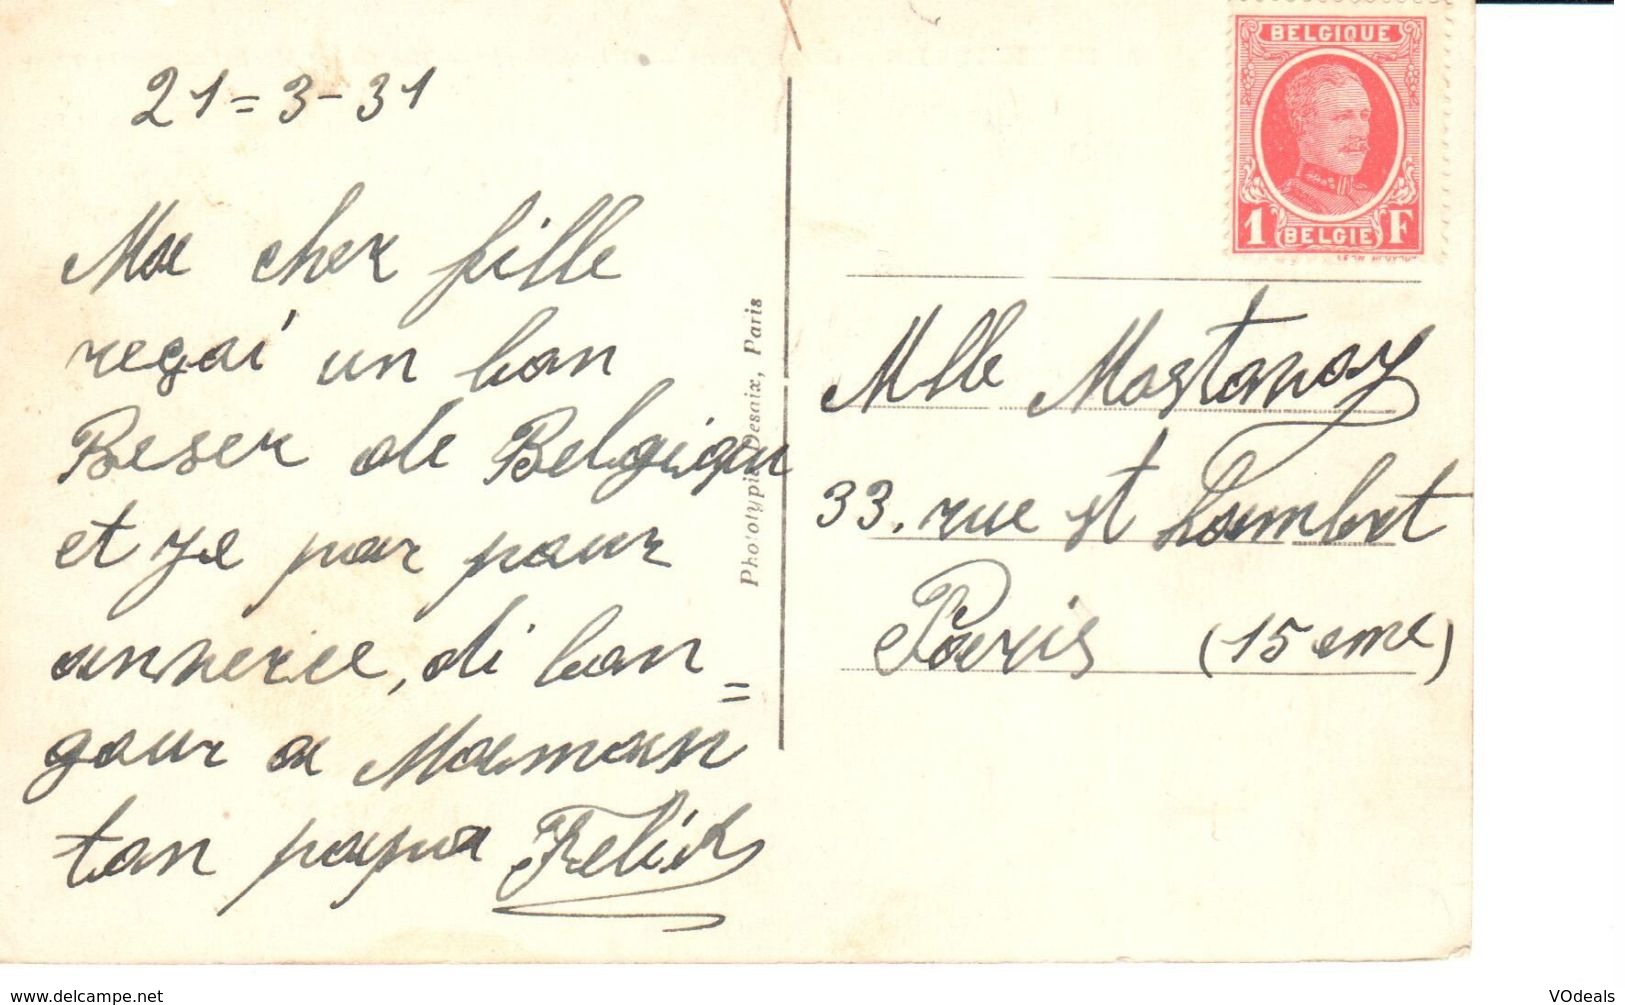 21=3-31
Ma cher fille
reçai un bon
Beser de Belgique
et je par pour
annerce, di bon=
gour a Maman
ton papa Felix
Phototypie Desaix, Paris
BELGIQUE
1 F
BELGIE
Mlle Mostanay
33. rue st Lambert
Paris (15 eme)
www.delcampe.net
VOdeals